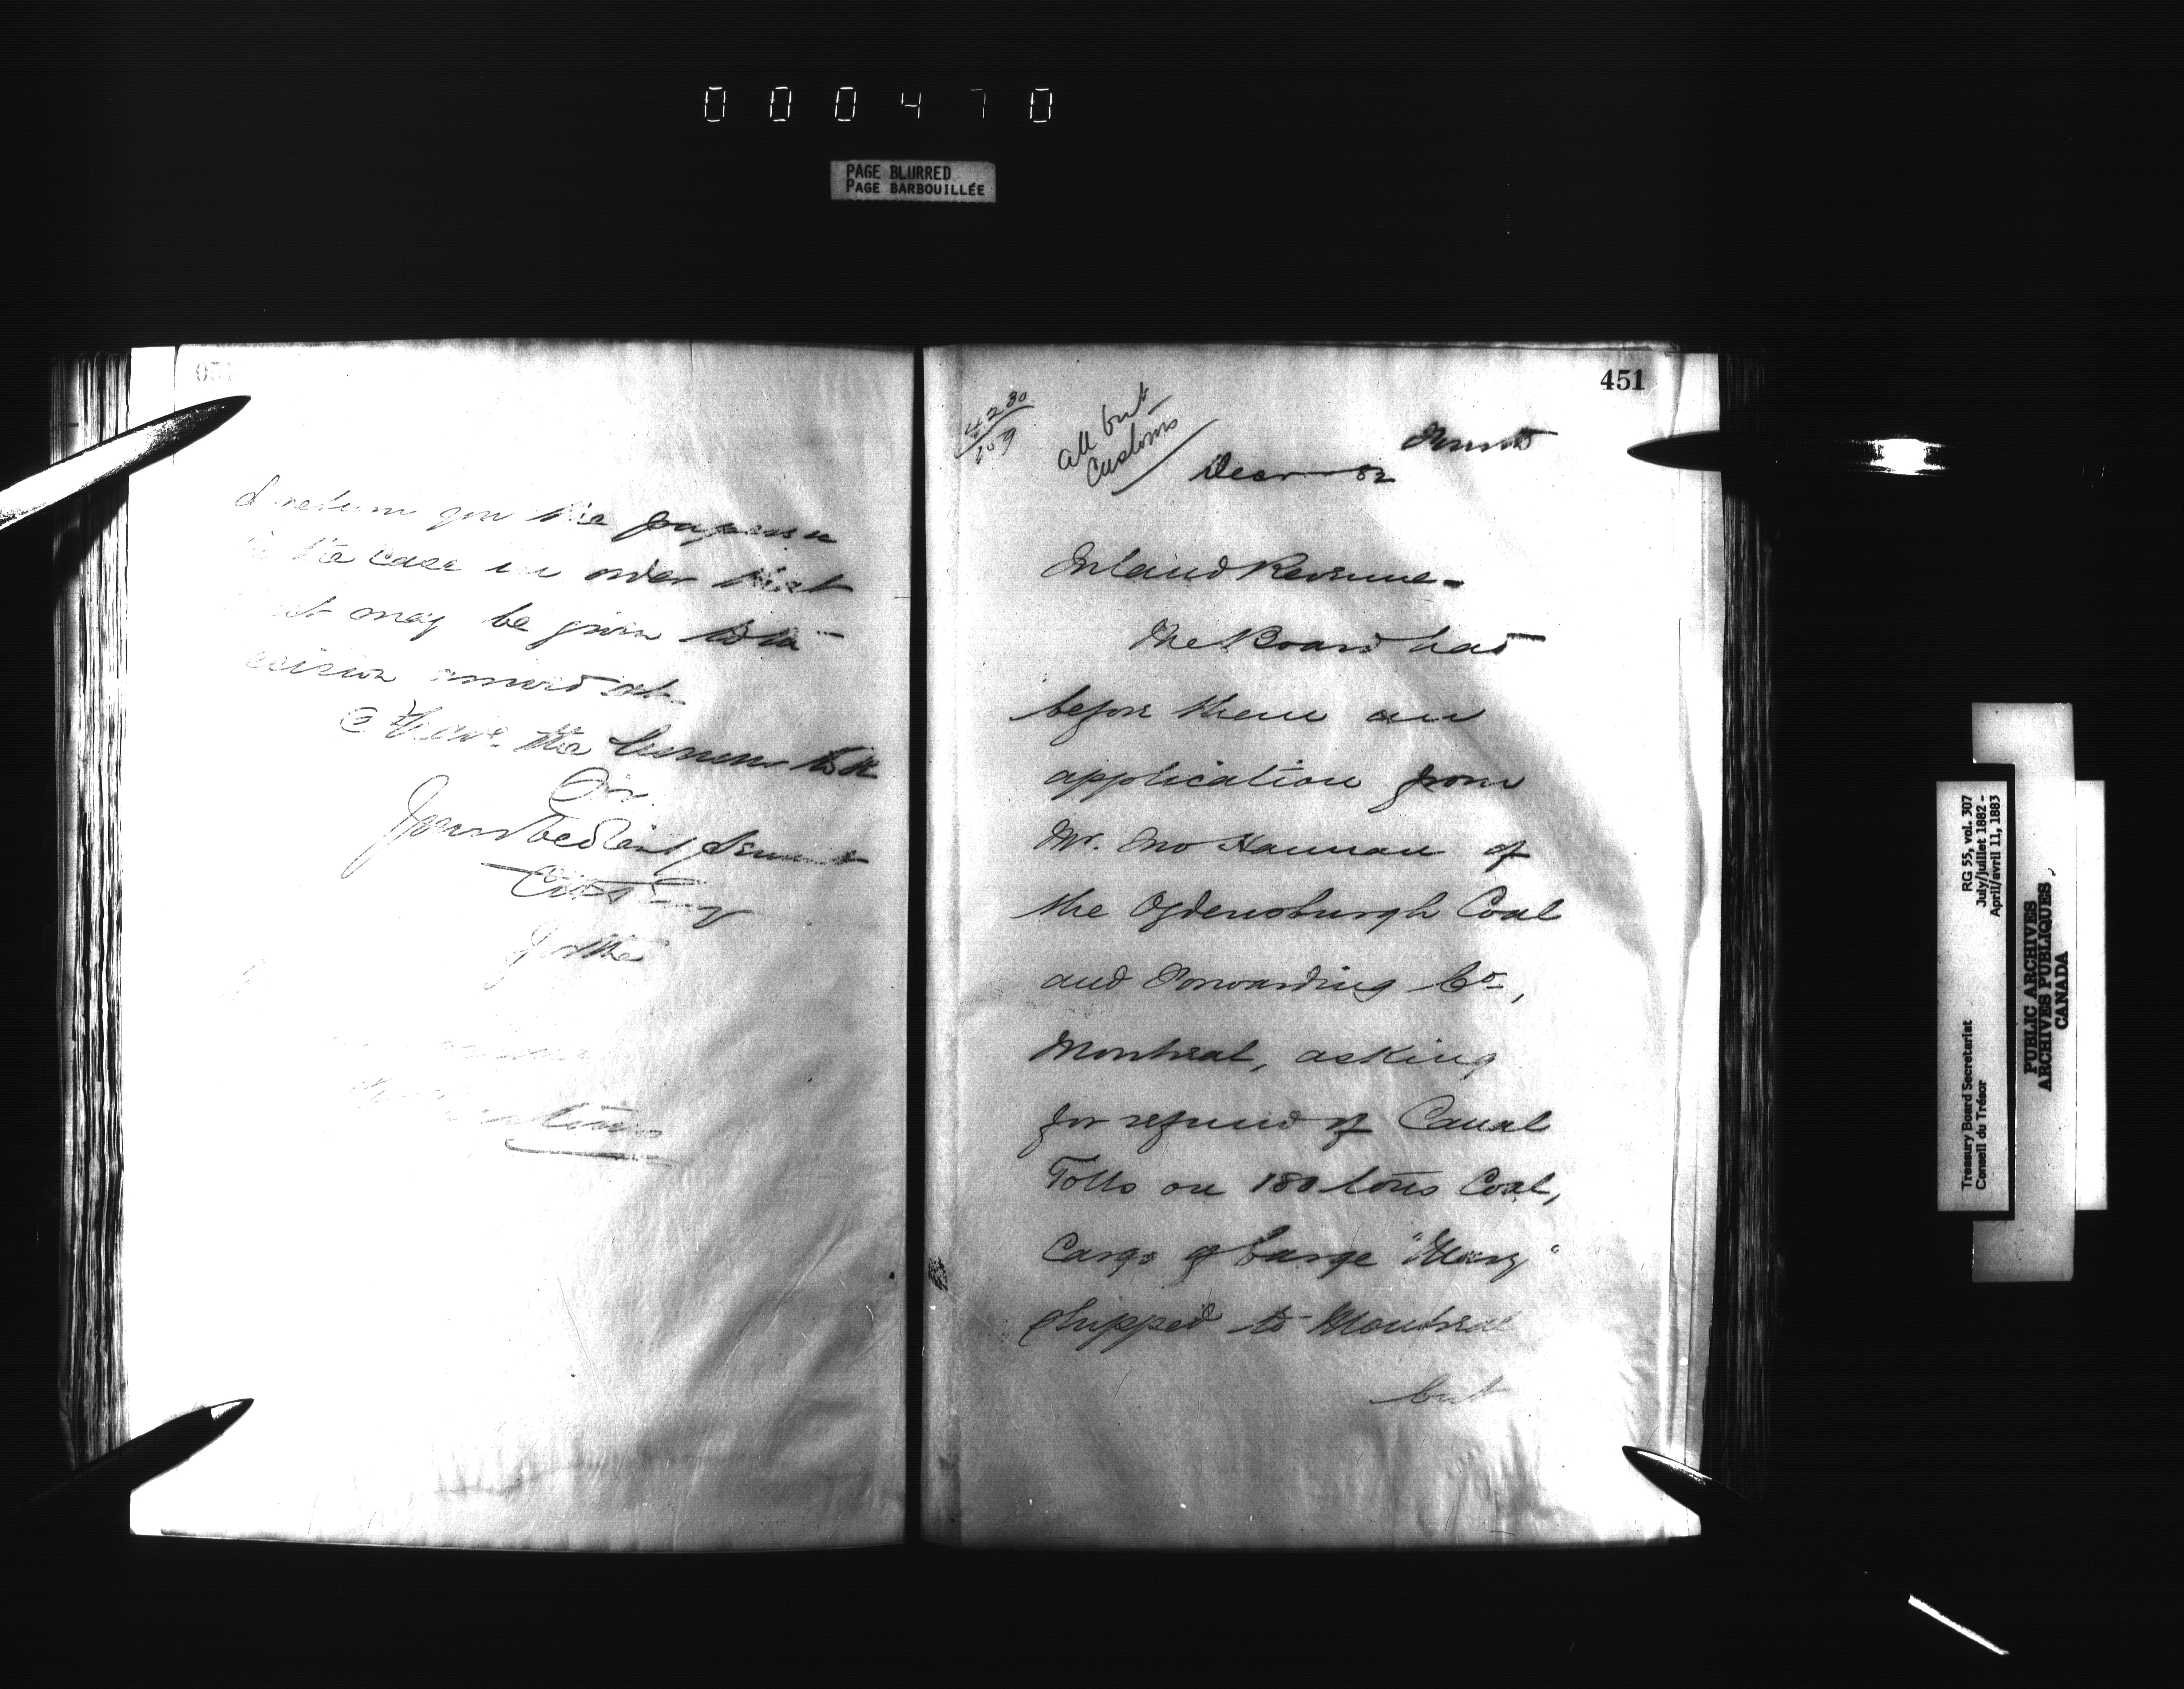 000470
PAGE BLURRED
PAGE BARBOUILLÉE
I return you the papers in
the case in order that
may be given to the
arrived at
I have the honour to be
Sir
Your obedient Servant
for the
451
4230
159
all but
Customs
Decr 82
Inland Revenue-
The Board had
before them an
application from
Mr. Jno Hannan of
the Ogdensburgh Coal
and Forwarding Co,
Montreal, asking
for refund of Canal
Tolls on 180 tons Coal,
Cargo of barge "Mary"
shipped to Montreal
but
Treasury Board Secretariat
Conseil du Trésor
RG 55, vol. 307
July/juillet 1882 -
April/avril 11, 1883
PUBLIC ARCHIVES
ARCHIVES PUBLIQUES
CANADA